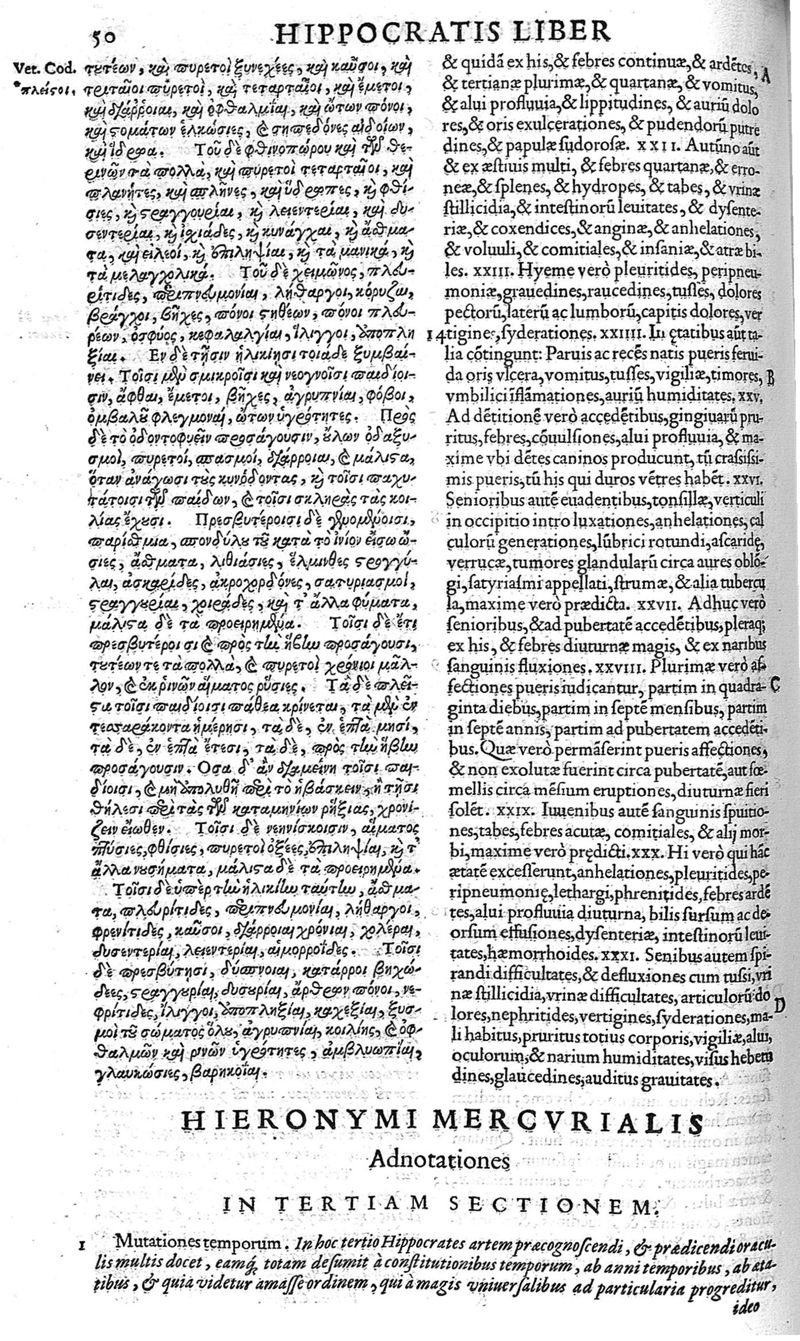 50 HIPPOCRATIS LIBER
Vet. Cod.
*πλεῖστοι.
τουτέων, καὶ πυρετοὶ ξυνεχέες, καὶ καῦσοι, καὶ
τριταῖοι πυρετοὶ, καὶ τεταρταῖοι, καὶ ἔμετοι,
καὶ διάρροιαι, καὶ ὀφθαλμίαι, καὶ ὤτων πόνοι,
καὶ στομάτων ἑλκώσιες, καὶ σηπεδόνες αἰδοίων,
καὶ ἵδρωα. Τοῦ δὲ φθινοπώρου καὶ τῶν θε-
ρινῶν τὰ πολλὰ, καὶ πυρετοὶ τεταρταῖοι, καὶ
πλανῆτες, καὶ σπλῆνες, καὶ ὕδρωπες, καὶ φθί-
σιες, καὶ στραγγουρίαι, καὶ λειεντερίαι, καὶ δυ-
σεντερίαι, καὶ ἰσχιάδες, καὶ κυνάγχαι, καὶ ἄσθμα-
τα, καὶ εἰλεοὶ, καὶ ἐπιληψίαι, καὶ τὰ μανικὰ, καὶ
τὰ μελαγχολικά. Τοῦ δὲ χειμῶνος, πλευ-
ρίτιδες, περιπνευμονίαι, λήθαργοι, κόρυζαι,
βράγχοι, βῆχες, πόνοι στηθέων, πόνοι πλευ-
ρέων, ὀσφύος, κεφαλαλγίαι, ἴλιγγοι, ἀποπλη
ξίαι. Ἐν δὲ τῇσιν ἡλικίῃσι τοιάδε ξυμβαί-
νει. Τοῖσι μὲν σμικροῖσι καὶ νεογνοῖσι παιδίοι-
σιν, ἄφθαι, ἔμετοι, βῆχες, ἀγρυπνίαι, φόβοι,
ὀμφαλοῦ φλεγμοναὶ, ὤτων ὑγρότητες. Πρὸς
δὲ τὸ ὀδοντοφυεῖν προσάγουσιν, οὔλων ὀδαξυ-
σμοὶ, πυρετοί, σπασμοὶ, διάρροιαι, καὶ μάλιστα,
ὅταν ἀνάγωσι τοὺς κυνόδοντας, καὶ τοῖσι παχυ-
τάτοισι τῶν παίδων, καὶ τοῖσι σκληρὰς τὰς κοι-
λίας ἔχουσι. Πρεσβυτέροισι δὲ γενομένοισι,
παρίσθμια, σπονδύλου τοῦ κατὰ τὸ ἰνίον εἴσω ὤ-
σιες, ἄσθματα, λιθιάσιες, ἕλμινθες στρογγύ-
λαι, ἀσκαρίδες, ἀκροχορδόνες, σατυριασμοὶ,
στραγγουρίαι, χοιράδες, καὶ τ' ἄλλα φύματα,
μάλιστα δὲ τὰ προειρημένα. Τοῖσι δὲ ἔτι
πρεσβυτέροισι καὶ πρὸς τὴν ἥβην προσάγουσι,
τουτέων τε τὰ πολλὰ, καὶ πυρετοὶ χρόνιοι μᾶλ-
λον, καὶ ἐκ ῥινῶν αἵματος ῥύσιες. Τὰ δὲ πλεῖ-
στα τοῖσι παιδίοισι πάθεα κρίνεται, τὰ μὲν ἐν
τεσσαράκοντα ἡμέρῃσι, τὰ δὲ, ἐν ἑπτὰ μησὶ,
τὰ δὲ, ἐν ἑπτὰ ἔτεσι, τὰ δὲ, πρὸς τὴν ἥβην
προσάγουσιν. Ὅσα δ' ἂν διαμείνῃ τοῖσι παι-
δίοισι, καὶ μὴ ἀπολυθῇ περὶ τὸ ἡβάσκειν, ἢ τῇσι
θήλεσι περὶ τὰς τῶν καταμηνίων ῥήξιας, χρονί-
ζειν εἴωθεν. Τοῖσι δὲ νεηνίσκοισιν, αἵματος
πτύσιες, φθίσιες, πυρετοὶ ὀξέες, ἐπιληψίαι, καὶ τ'
ἄλλα νουσήματα, μάλιστα δὲ τὰ προειρημένα.
Τοῖσι δὲ ὑπὲρ τὴν ἡλικίην ταύτην, ἄσθμα-
τα, πλευρίτιδες, περιπνευμονίαι, λήθαργοι,
φρενίτιδες, καῦσοι, διάρροιαι χρόνιαι, χολέραι,
δυσεντερίαι, λειεντερίαι, αἱμορροΐδες. Τοῖσι
δὲ πρεσβύτῃσι, δύσπνοιαι, κατάρροι βηχώ-
δεες, στραγγουρίαι, δυσουρίαι, ἄρθρων πόνοι, νε-
φρίτιδες, ἴλιγγοι, ἀποπληξίαι, καχεξίαι, ξυσ-
μοὶ τοῦ σώματος ὅλου, ἀγρυπνίαι, κοιλίης, καὶ ὀφ-
θαλμῶν καὶ ῥινῶν ὑγρότητες, ἀμβλυωπίαι,
γλαυκώσιες, βαρηκοΐαι.
& quidã ex his, & febres continuæ, & ardẽtes, A
& tertianæ plurimæ, & quartanæ, & vomitus,
& alui profluuia, & lippitudines, & auriũ dolo
res, & oris exulcerationes, & pudendorũ putre
dines, & papulæ sudorosæ. XXII. Autũno aũt
& ex æstiuis multi, & febres quartanæ, & erro-
neæ, & splenes, & hydropes, & tabes, & vrinæ
stillicidia, & intestinorũ leuitates, & dysente-
riæ, & coxendices, & anginæ, & anhelationes,
& voluuli, & comitiales, & insaniæ, & atræ bi-
les. XXIII. Hyeme verò pleuritides, peripneu-
moniæ, grauedines, raucedines, tusses, dolores
pectorũ, laterũ ac lumborũ, capitis dolores, ver
14 tigines, syderationes. XXIIII. In ętatibus aũt ta-
lia cõtingunt: Paruis ac recẽs natis pueris serui-
da oris vlcera, vomitus, tusses, vigiliæ, timores, B
vmbilici ĩflãmationes, auriũ humiditates. XXV.
Ad dẽtitionẽ verò accedẽtibus, gingiuarũ pru-
ritus, febres, cõuulsiones, alui profluuia, & ma-
xime vbi dẽtes caninos producunt, tũ crassissi-
mis pueris, tũ his qui duros vẽtres habẽt. XXVI.
Senioribus autẽ euadentibus, tonsillæ, verticuli
in occipitio intro luxationes, anhelationes, cal
culorũ generationes, lũbrici rotundi, ascaridę,
verrucæ, tumores glandularũ circa aures oblõ-
gi, satyriasmi appellati, strumæ, & alia tubercu
la, maxime verò prædicta. XXVII. Adhuc verò
senioribus, & ad pubertatẽ accedẽtibus, pleraq;
ex his, & febres diuturnæ magis, & ex naribus
sanguinis fluxiones. XXVIII. Plurimæ verò af-
fectiones pueris iudicantur, partim in quadra- C
ginta diebus, partim in septẽ mensibus, partim
in septẽ annis, partim ad pubertatem accedẽti-
bus. Quæ verò permãserint pueris affectiones,
& non exolutæ fuerint circa pubertatẽ, aut fœ-
mellis circa mẽsium eruptiones, diuturnæ fieri
solẽt. XXIX. Iuuenibus autẽ sanguinis spuitio-
nes, tabes, febres acutæ, comitiales, & alij mor-
bi, maxime verò prędicti. XXX. Hi verò qui hãc
ætatẽ excesserunt, anhelationes, pleuritides, pe-
ripneumonię, lethargi, phrenitides, febres ardẽ
tes, alui profluuia diuturna, bilis sursum ac de-
orsum effusiones, dysenteriæ, intestinorũ leui-
tates, hæmorrhoides. XXXI. Senibus autem spi-
randi difficultates, & defluxiones cum tussi, vri
næ stillicidia, vrinæ difficultates, articulorũ do D
lores, nephritides, vertigines, syderationes, ma-
li habitus, pruritus totius corporis, vigiliæ, alui,
oculorum, & narium humiditates, visus hebetu
dines, glaucedines, auditus grauitates.
HIERONYMI MERCVRIALIS
Adnotationes
IN TERTIAM SECTIONEM.
1 Mutationes temporum. In hoc tertio Hippocrates artem præcognoscendi, & prædicendi oracu-
lis multis docet, eamq; totam desumit à constitutionibus temporum, ab anni temporibus, ab æta-
tibus, & quia videtur amasse ordinem, qui à magis vniuersalibus ad particularia progreditur,
ideo